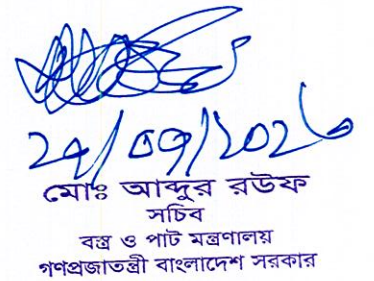 মোঃ আব্দুর রউফ
সচিব
বস্ত্র ও পাট মন্ত্রণালয়
গণপ্রজাতন্ত্রী বাংলাদেশ সরকার